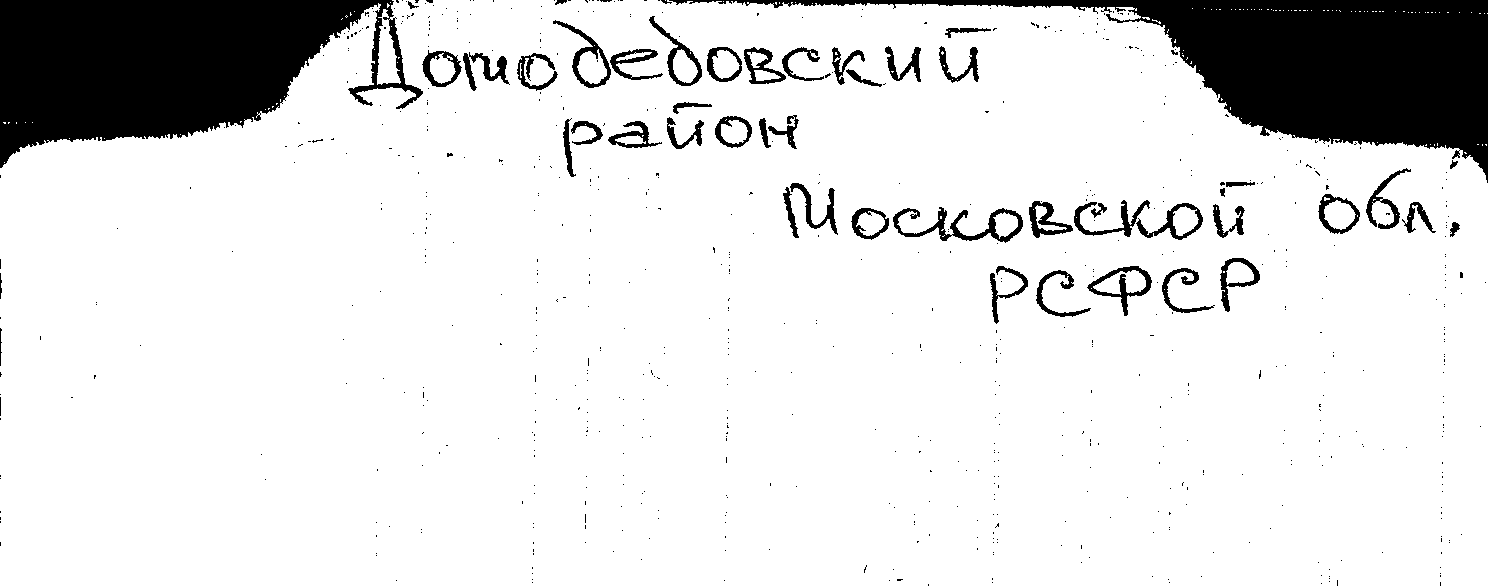 Домодедовский
район
Московской обл.
РСФСР